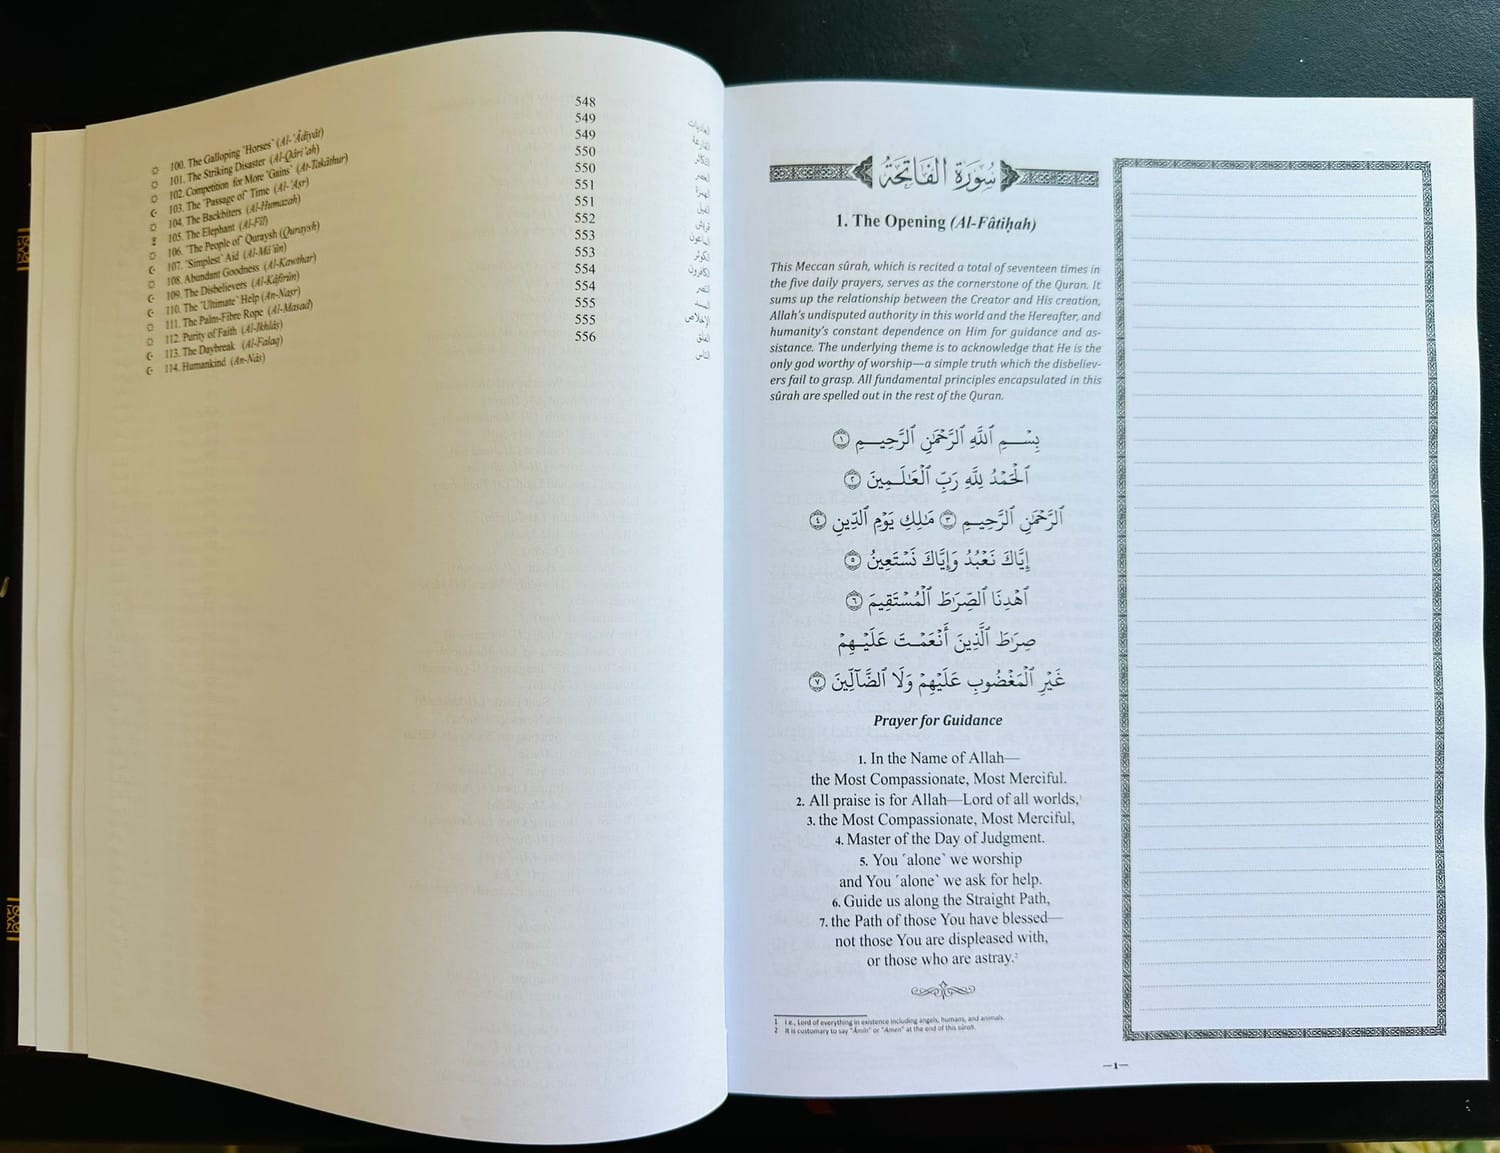 100. The Galloping ˹Horses˺ (Al-'Âdiyât) 548 العاديات
101. The Striking Disaster (Al-Qâri'ah) 549 القارعة
102. Competition for More ˹Gains˺ (At-Takâthur) 549 التكاثر
103. The ˹Passage of˺ Time (Al-'Aṣr) 550 العصر
104. The Backbiters (Al-Humazah) 550 الهمزة
105. The Elephant (Al-Fîl) 551 الفيل
106. ˹The People of˺ Quraysh (Quraysh) 551 قريش
107. ˹Simplest˺ Aid (Al-Mâ'ûn) 552 الماعون
108. Abundant Goodness (Al-Kawthar) 553 الكوثر
109. The Disbelievers (Al-Kâfirûn) 553 الكافرون
110. The ˹Ultimate˺ Help (An-Naṣr) 554 النصر
111. The Palm-Fibre Rope (Al-Masad) 554 المسد
112. Purity of Faith (Al-Ikhlâṣ) 555 الإخلاص
113. The Daybreak (Al-Falaq) 555 الفلق
114. Humankind (An-Nâs) 556 الناس
سُورَةُ الفَاتِحَةِ
1. The Opening (Al-Fâtiḥah)
This Meccan sûrah, which is recited a total of seventeen times in
the five daily prayers, serves as the cornerstone of the Quran. It
sums up the relationship between the Creator and His creation,
Allah's undisputed authority in this world and the Hereafter, and
humanity's constant dependence on Him for guidance and as-
sistance. The underlying theme is to acknowledge that He is the
only god worthy of worship—a simple truth which the disbeliev-
ers fail to grasp. All fundamental principles encapsulated in this
sûrah are spelled out in the rest of the Quran.
بِسْمِ ٱللَّهِ ٱلرَّحْمَٰنِ ٱلرَّحِيمِ ١
ٱلْحَمْدُ لِلَّهِ رَبِّ ٱلْعَٰلَمِينَ ٢
ٱلرَّحْمَٰنِ ٱلرَّحِيمِ ٣ مَٰلِكِ يَوْمِ ٱلدِّينِ ٤
إِيَّاكَ نَعْبُدُ وَإِيَّاكَ نَسْتَعِينُ ٥
ٱهْدِنَا ٱلصِّرَٰطَ ٱلْمُسْتَقِيمَ ٦
صِرَٰطَ ٱلَّذِينَ أَنْعَمْتَ عَلَيْهِمْ
غَيْرِ ٱلْمَغْضُوبِ عَلَيْهِمْ وَلَا ٱلضَّآلِّينَ ٧
Prayer for Guidance
1. In the Name of Allah—
the Most Compassionate, Most Merciful.
2. All praise is for Allah—Lord of all worlds,1
3. the Most Compassionate, Most Merciful,
4. Master of the Day of Judgment.
5. You ˹alone˺ we worship
and You ˹alone˺ we ask for help.
6. Guide us along the Straight Path,
7. the Path of those You have blessed—
not those You are displeased with,
or those who are astray.2
1 i.e., Lord of everything in existence including angels, humans, and animals.
2 It is customary to say "Âmîn" or "Amen" at the end of this sûrah.
—1—